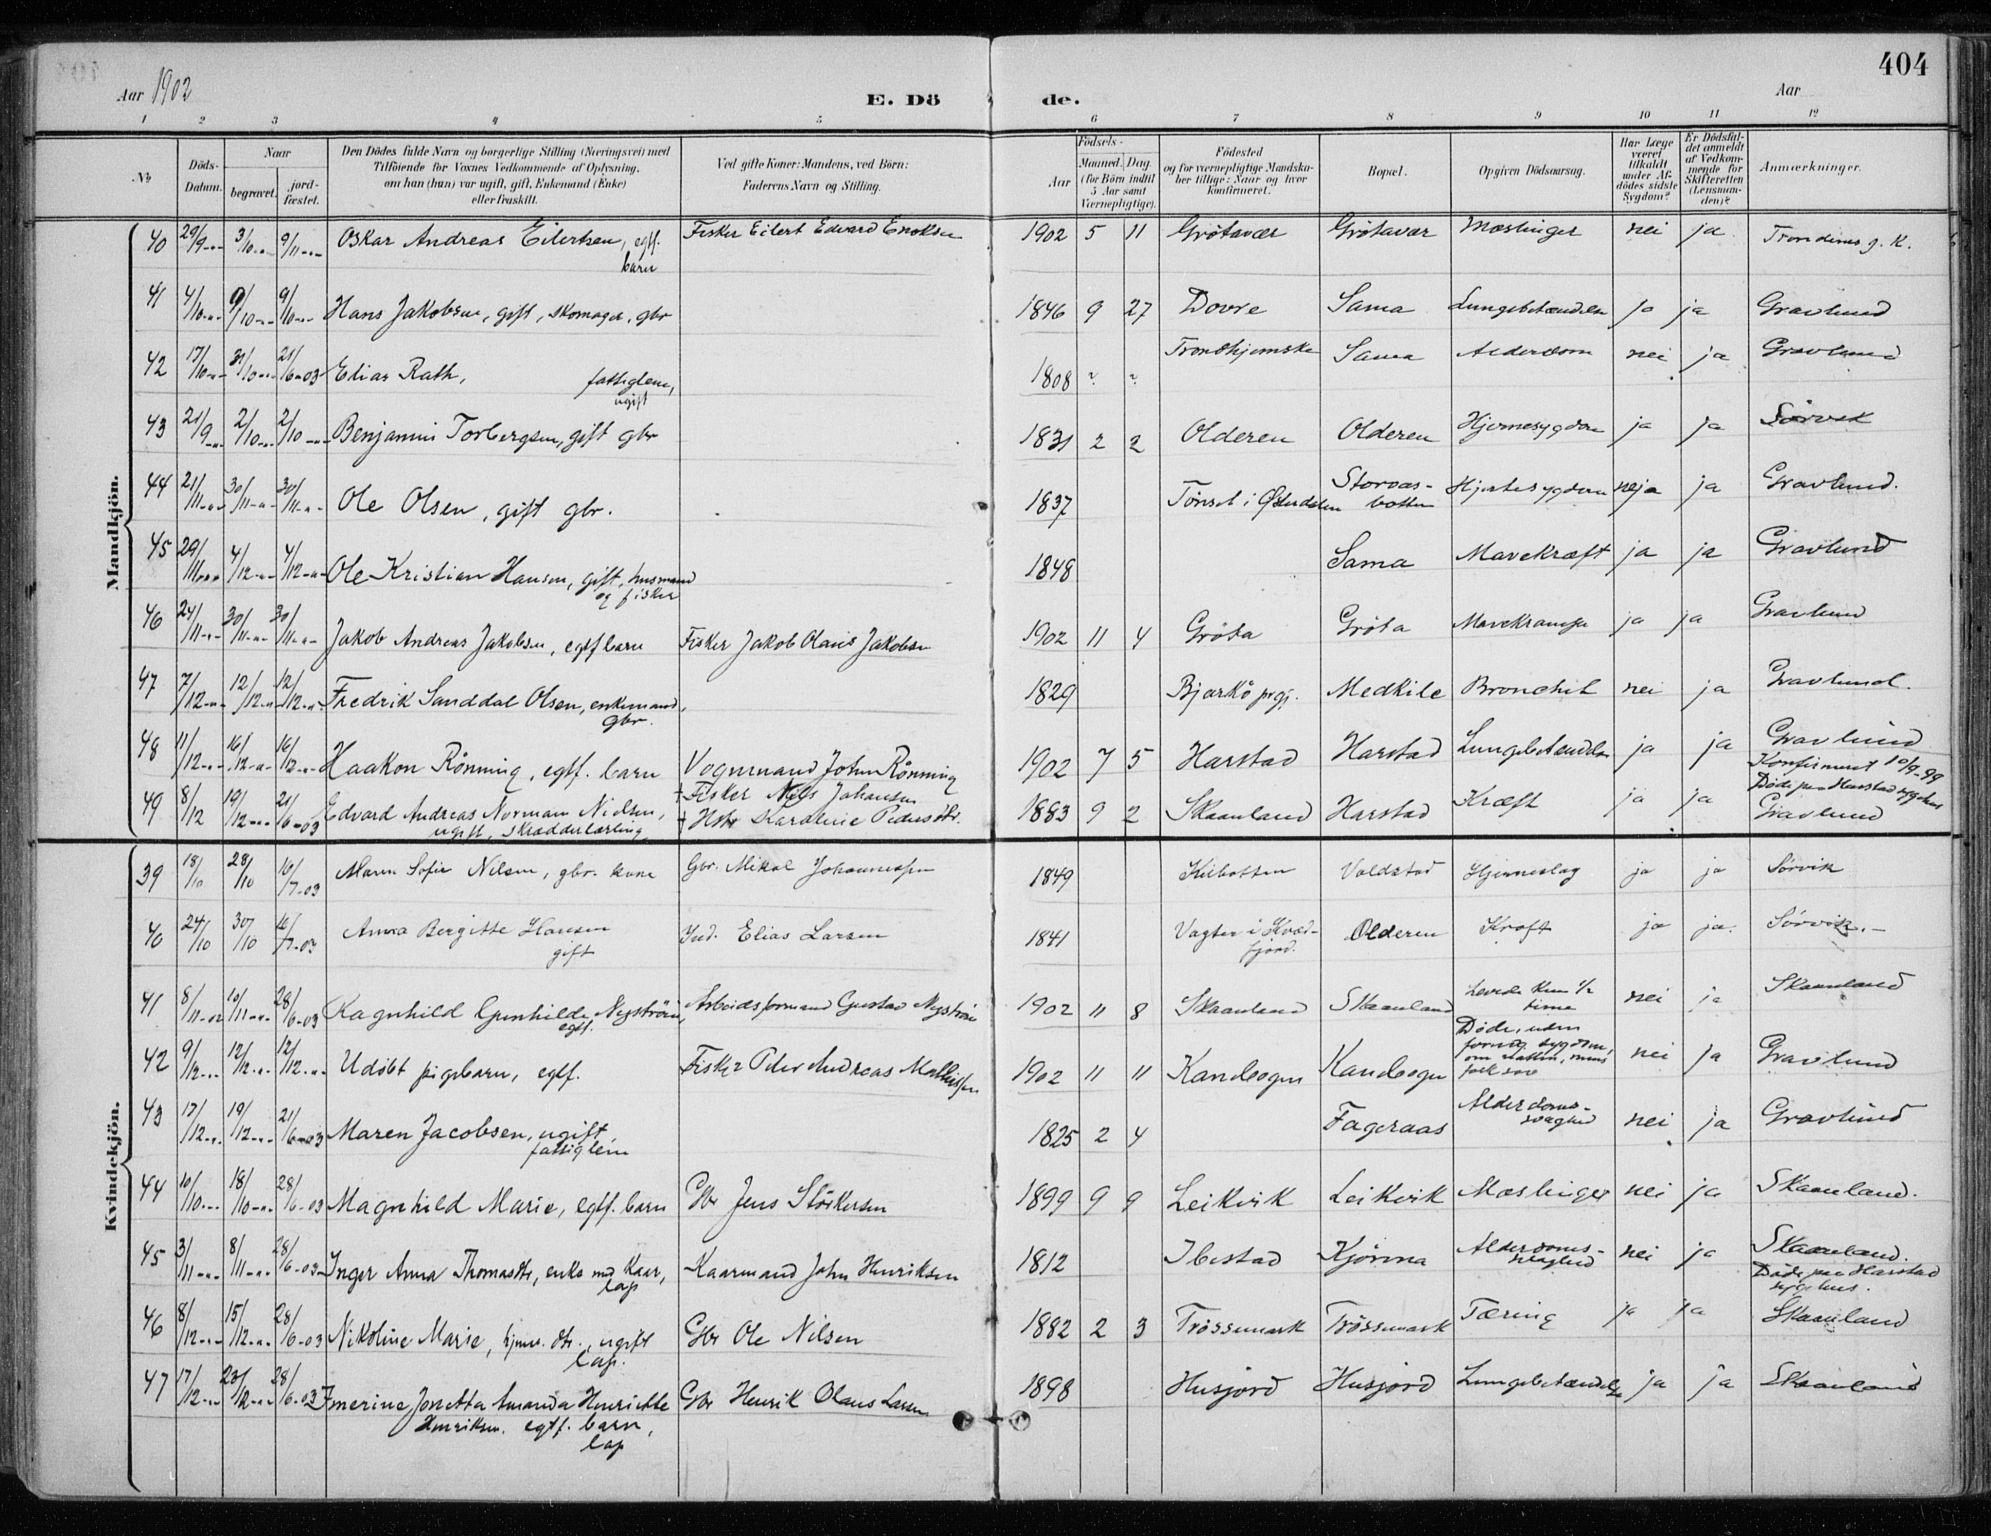 404
Aar 1902
E. Döde.
Aar
1 2 3 4 5 6 7 8 9 10 11 12
No
Döds-Datum.
Naar
begravet.
jord-fæstet.
Den Dödes fulde Navn og borgerlige Stilling (Næringsvei) med
Tilföiende for Voxnes Vedkommende af Oplysning,
om han (hun) var ugift, gift, Enkemand (Enke)
eller fraskilt.
Ved gifte Koner: Mandens, ved Börn:
Faderens Navn og Stilling.
Födsels-
Aar
Maaned. Dag.
(for Börn indtil
5 Aar samt
Værnepligtige).
Födested
og for værnepligtige Mandska-
ber tillige: Naar og hvor
konfirmeret.
Bopæl.
Opgiven Dödsaarsag.
Har Læge
været
tilkaldt
under Af-
dödes sidste
Sygdom?
Er Dödsfal-
det anmeldt
af Vedkom-
mende for
Skifteretten
(Lensman-
den)?
Anmærkninger.
Mandkjön.
40 29/9 3/10 9/11 Oskar Andreas Eilertsen, egtf. barn Fisker Eilert Edvard Enoksen 1902 5 11 Grötavær Grötavær Mæslinger nei ja Trondenes g. K.
41 4/10 9/10 9/10 Hans Jakobsen, gift, skomager, gbr 1846 9 27 Dovre Sama Lungebetændelse ja ja Gravlund
42 17/10 31/10 21/6-03 Elias Rath, fattiglem, ugift 1808 ? ? Trondhjemske Sama Alderdom nei ja Gravlund
43 21/9 2/10 2/10 Benjamin Torbergsen, gift gbr 1831 2 2 Olderen Olderen Hjernesygdom ja ja Sørvik
44 21/11 30/11 30/11 Ole Olsen, gift gbr. 1837 Tönset i Østerdalen Storvasbotten Hjertesygdom ja ja Gravlund.
45 29/11 4/12 4/12 Ole Kristian Hansen, gift, husmand og fisker 1848 Sama Mavekræft ja ja Gravlund
46 24/11 30/11 30/11 Jakob Andreas Jakobsen, egtf barn Fisker Jakob Olaus Jakobsen 1902 11 4 Gröta Gröta Mavekrampe ja ja Gravlund
47 7/12 12/12 12/12 Fredrik Sanddal Olsen, enkemand, gbr. 1829 Bjarkö prgj. Medkile Bronchit nei ja Gravlund.
48 11/12 16/12 16/12 Haakon Rönning, egtf. barn Vognmand John Rönning 1902 7 5 Harstad Harstad Lungebetændelse ja ja Gravlund
49 8/12 19/12 21/6-03 Edvard Andreas Norman Nielsen, ugift, skrædderlærling † Fisker Nels Johansen † Hstr Karoline Pedersdtr. 1883 9 2 Skaanland Harstad Kræft ja ja Konfirmeret 10/9-99 Döde paa Harstad sygehus Gravlund
Kvindekjön.
39 18/10 28/10 10/7-03 Maren Sofie Nilsen, gbr. kone Gbr. Mikal Johannessen 1849 Kilbotten Voldstad Hjerneslag ja ja Sørvik
40 24/10 30/10 10/7-03 Anna Bergitte Hansen gift Ind. Elias Larsen 1841 Vagten i Kvædfjord. Olderen Kræft ja ja. Sørvik.
41 8/11-02 10/11 28/6-03 Ragnhild Gunhilde Nyström, egtf. Arbeidsformand Gustav Nyström 1902 11 8 Skaanland Skaanland Levede kun 1/2 time nei ja Skaanland
42 9/12 12/12 12/12 Udöbt pigebarn, egtf. Fisker Peder Andreas Mathissen 1902 11 11 Kanebogen Kanebogen Döde, uden forudg sygdom, om natten, mens folk sov nei ja Gravlund
43 17/12 19/12 21/6-03 Maren Jacobsen, ugift, fattiglem 1825 2 4 Fageraas Alderdomssvaghed nei ja Gravlund
44 10/10 18/10 28/6-03 Magnhild Marie, egtf. barn Gbr Jens Störkersen 1899 9 9 Leikvik Leikvik Mæslinger nei ja Skaanland.
45 3/11 8/11 28/6-03 Inger Anna Thomasdtr, enke med Kaar, lap Kaarmand John Henriksen 1812 Ibestad Kjönna Alderdomssvaghed nei ja Skaanland.
46 8/12 15/12 28/6-03 Nikoline Marie, hjmv. dtr., ugift lap. Gbr Ole Nilsen 1882 2 3 Trössemark Trössemark Tæring ja ja Döde paa Harstad sygehus. Skaanland
47 17/12 23/12 28/6-03 Imerine Jonetta Amanda Henriette Henriksen. egtf. barn, lap Gbr Henrik Olaus Larsen 1898 Husjord Husjord Lungebetændelse ja ja Skaanland